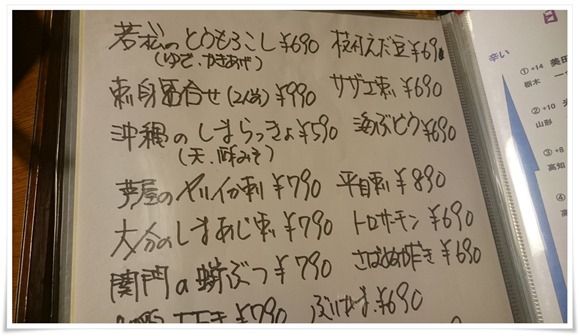 若松のとうもろこし ¥690
(ゆで、かきあげ)
枝付えだ豆 ¥690
刺身盛合せ(2人前) ¥990
サザエ刺し ¥690
沖縄のしまらっきょ ¥590
(天、酢みそ)
海ぶどう ¥690
芦屋のヤリイカ刺 ¥790
平目刺 ¥890
大分のしまあじ刺 ¥790
トロサーモン ¥690
関門の蛸ぶつ ¥790
さばぬか炊き ¥690
¥790
¥690
辛い
① +14
栃木
② +10
山形
③ +8
高知
④